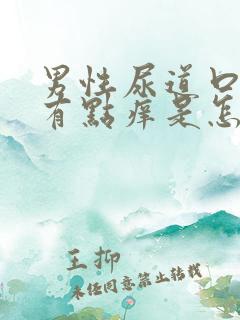 男性尿道口
有點痒是怎
王抑
未经同意禁止转载